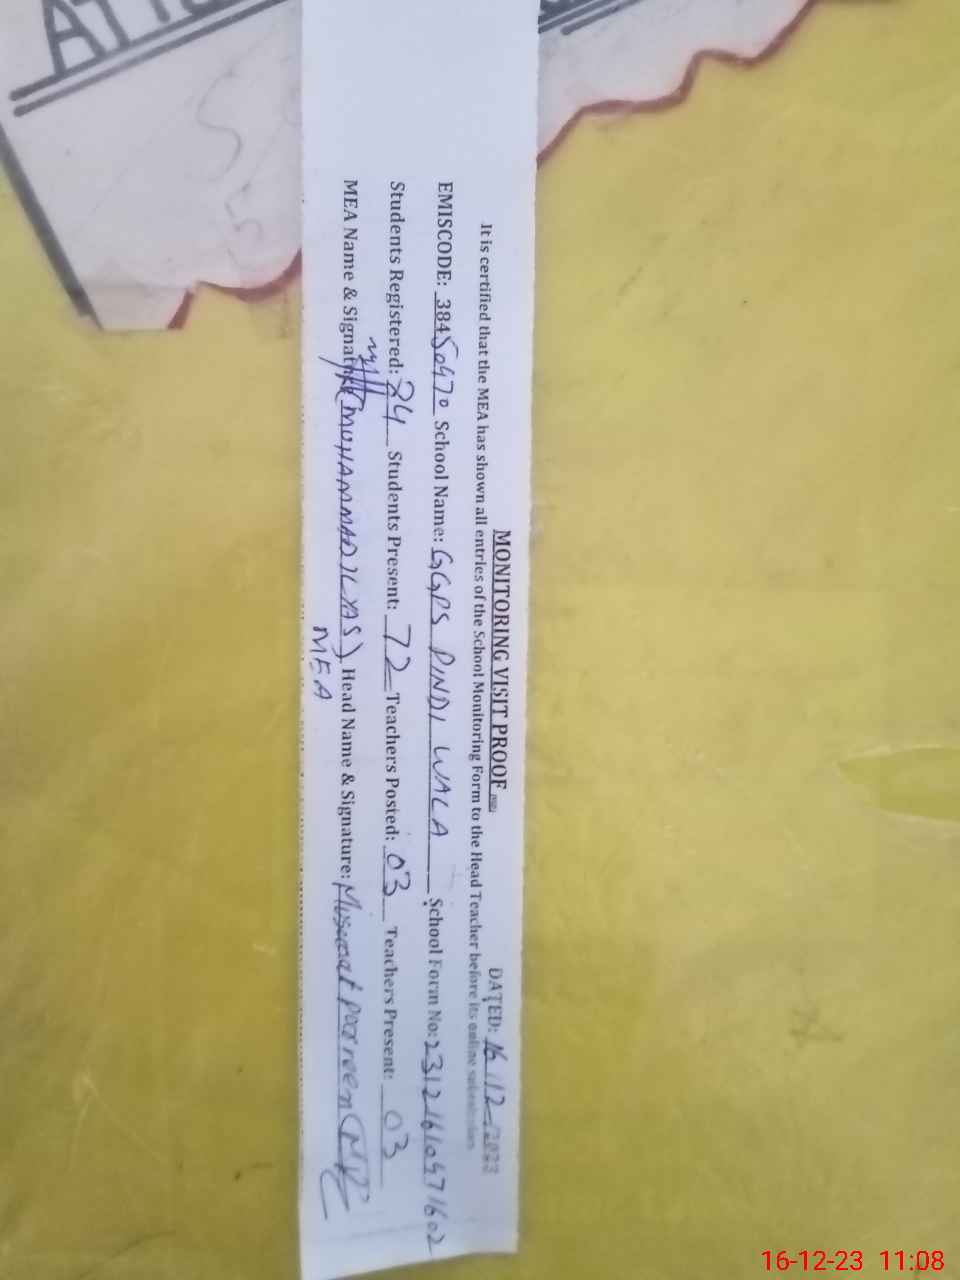 MONITORING VISIT PROOF DATED: 16/12/2023
It is certified that the MEA has shown all entries of the School Monitoring Form to the Head Teacher before its online submission
EMISCODE: 38450470 School Name: GGPS PINDI WALA School Form No: 23121610471602
Students Registered: 84 Students Present: 72 Teachers Posted: 03 Teachers Present: 03
MEA Name & Signature (MUHAMMAD ILYAS) Head Name & Signature: Musarat parveen
MEA
16-12-23 11:08